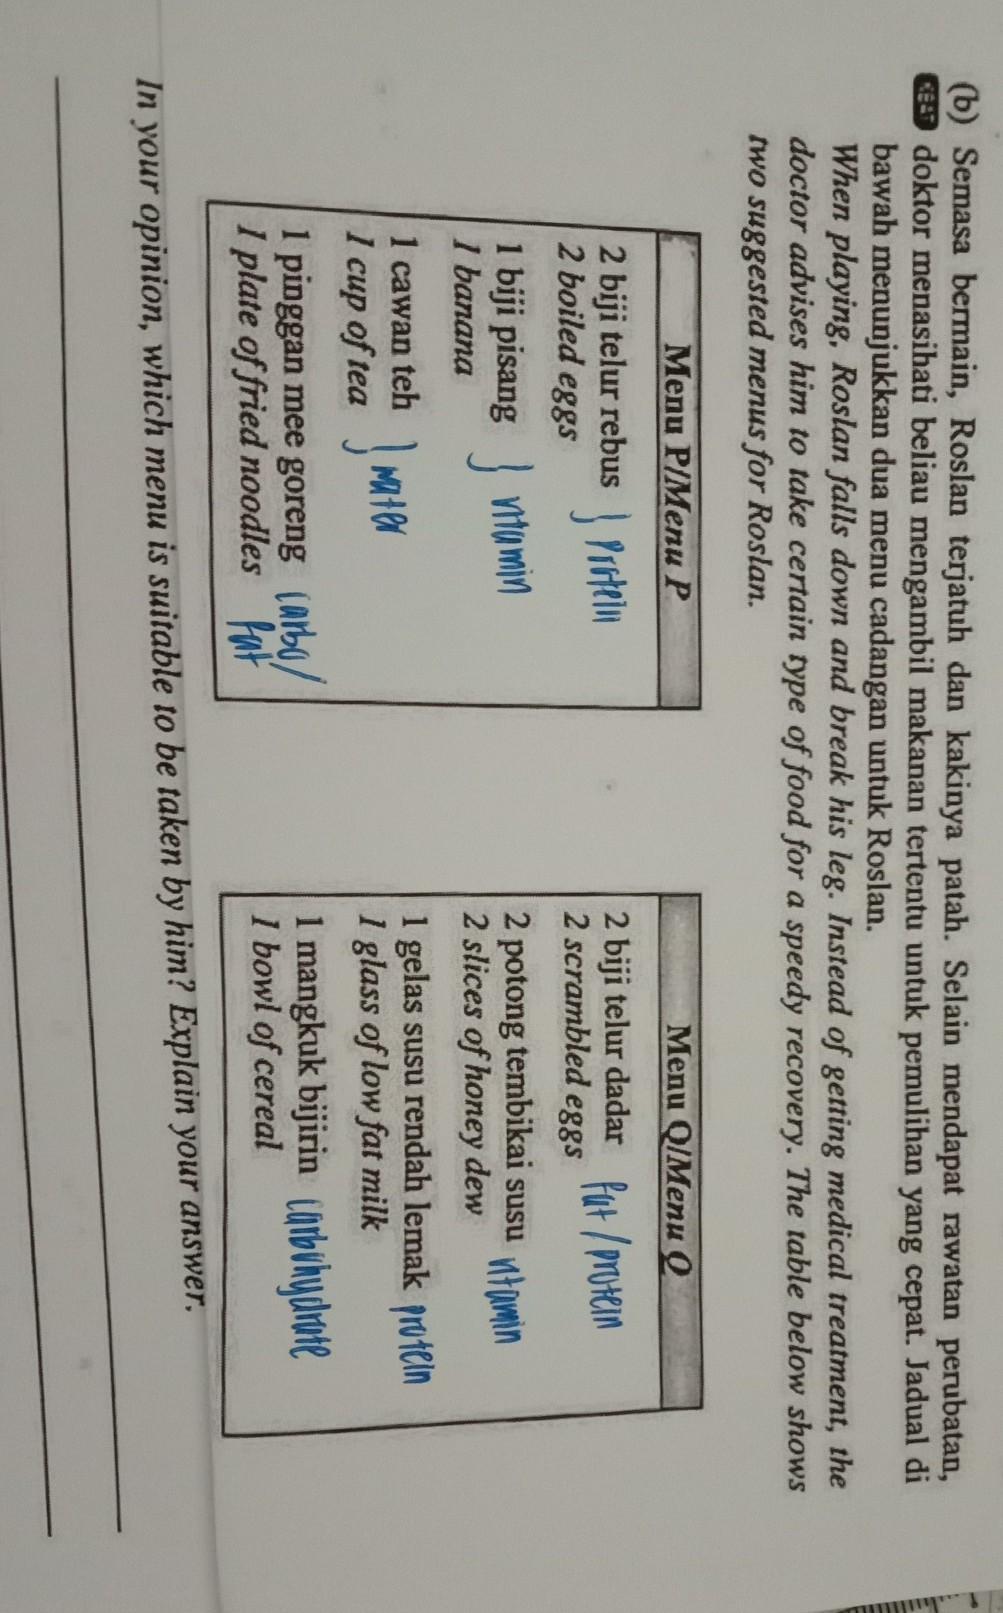 (b) Semasa bermain, Roslan terjatuh dan kakinya patah. Selain mendapat rawatan perubatan,
doktor menasihati beliau mengambil makanan tertentu untuk pemulihan yang cepat. Jadual di
bawah menunjukkan dua menu cadangan untuk Roslan.
When playing, Roslan falls down and break his leg. Instead of getting medical treatment, the
doctor advises him to take certain type of food for a speedy recovery. The table below shows
two suggested menus for Roslan.
Menu P/Menu P
2 biji telur rebus } protein
2 boiled eggs
1 biji pisang } vitamin
1 banana
1 cawan teh } water
1 cup of tea
1 pinggan mee goreng carbo/
1 plate of fried noodles fat
Menu Q/Menu Q
2 biji telur dadar fat / protein
2 scrambled eggs
2 potong tembikai susu vitamin
2 slices of honey dew
1 gelas susu rendah lemak protein
1 glass of low fat milk
1 mangkuk bijirin carbohydrate
1 bowl of cereal
In your opinion, which menu is suitable to be taken by him? Explain your answer.